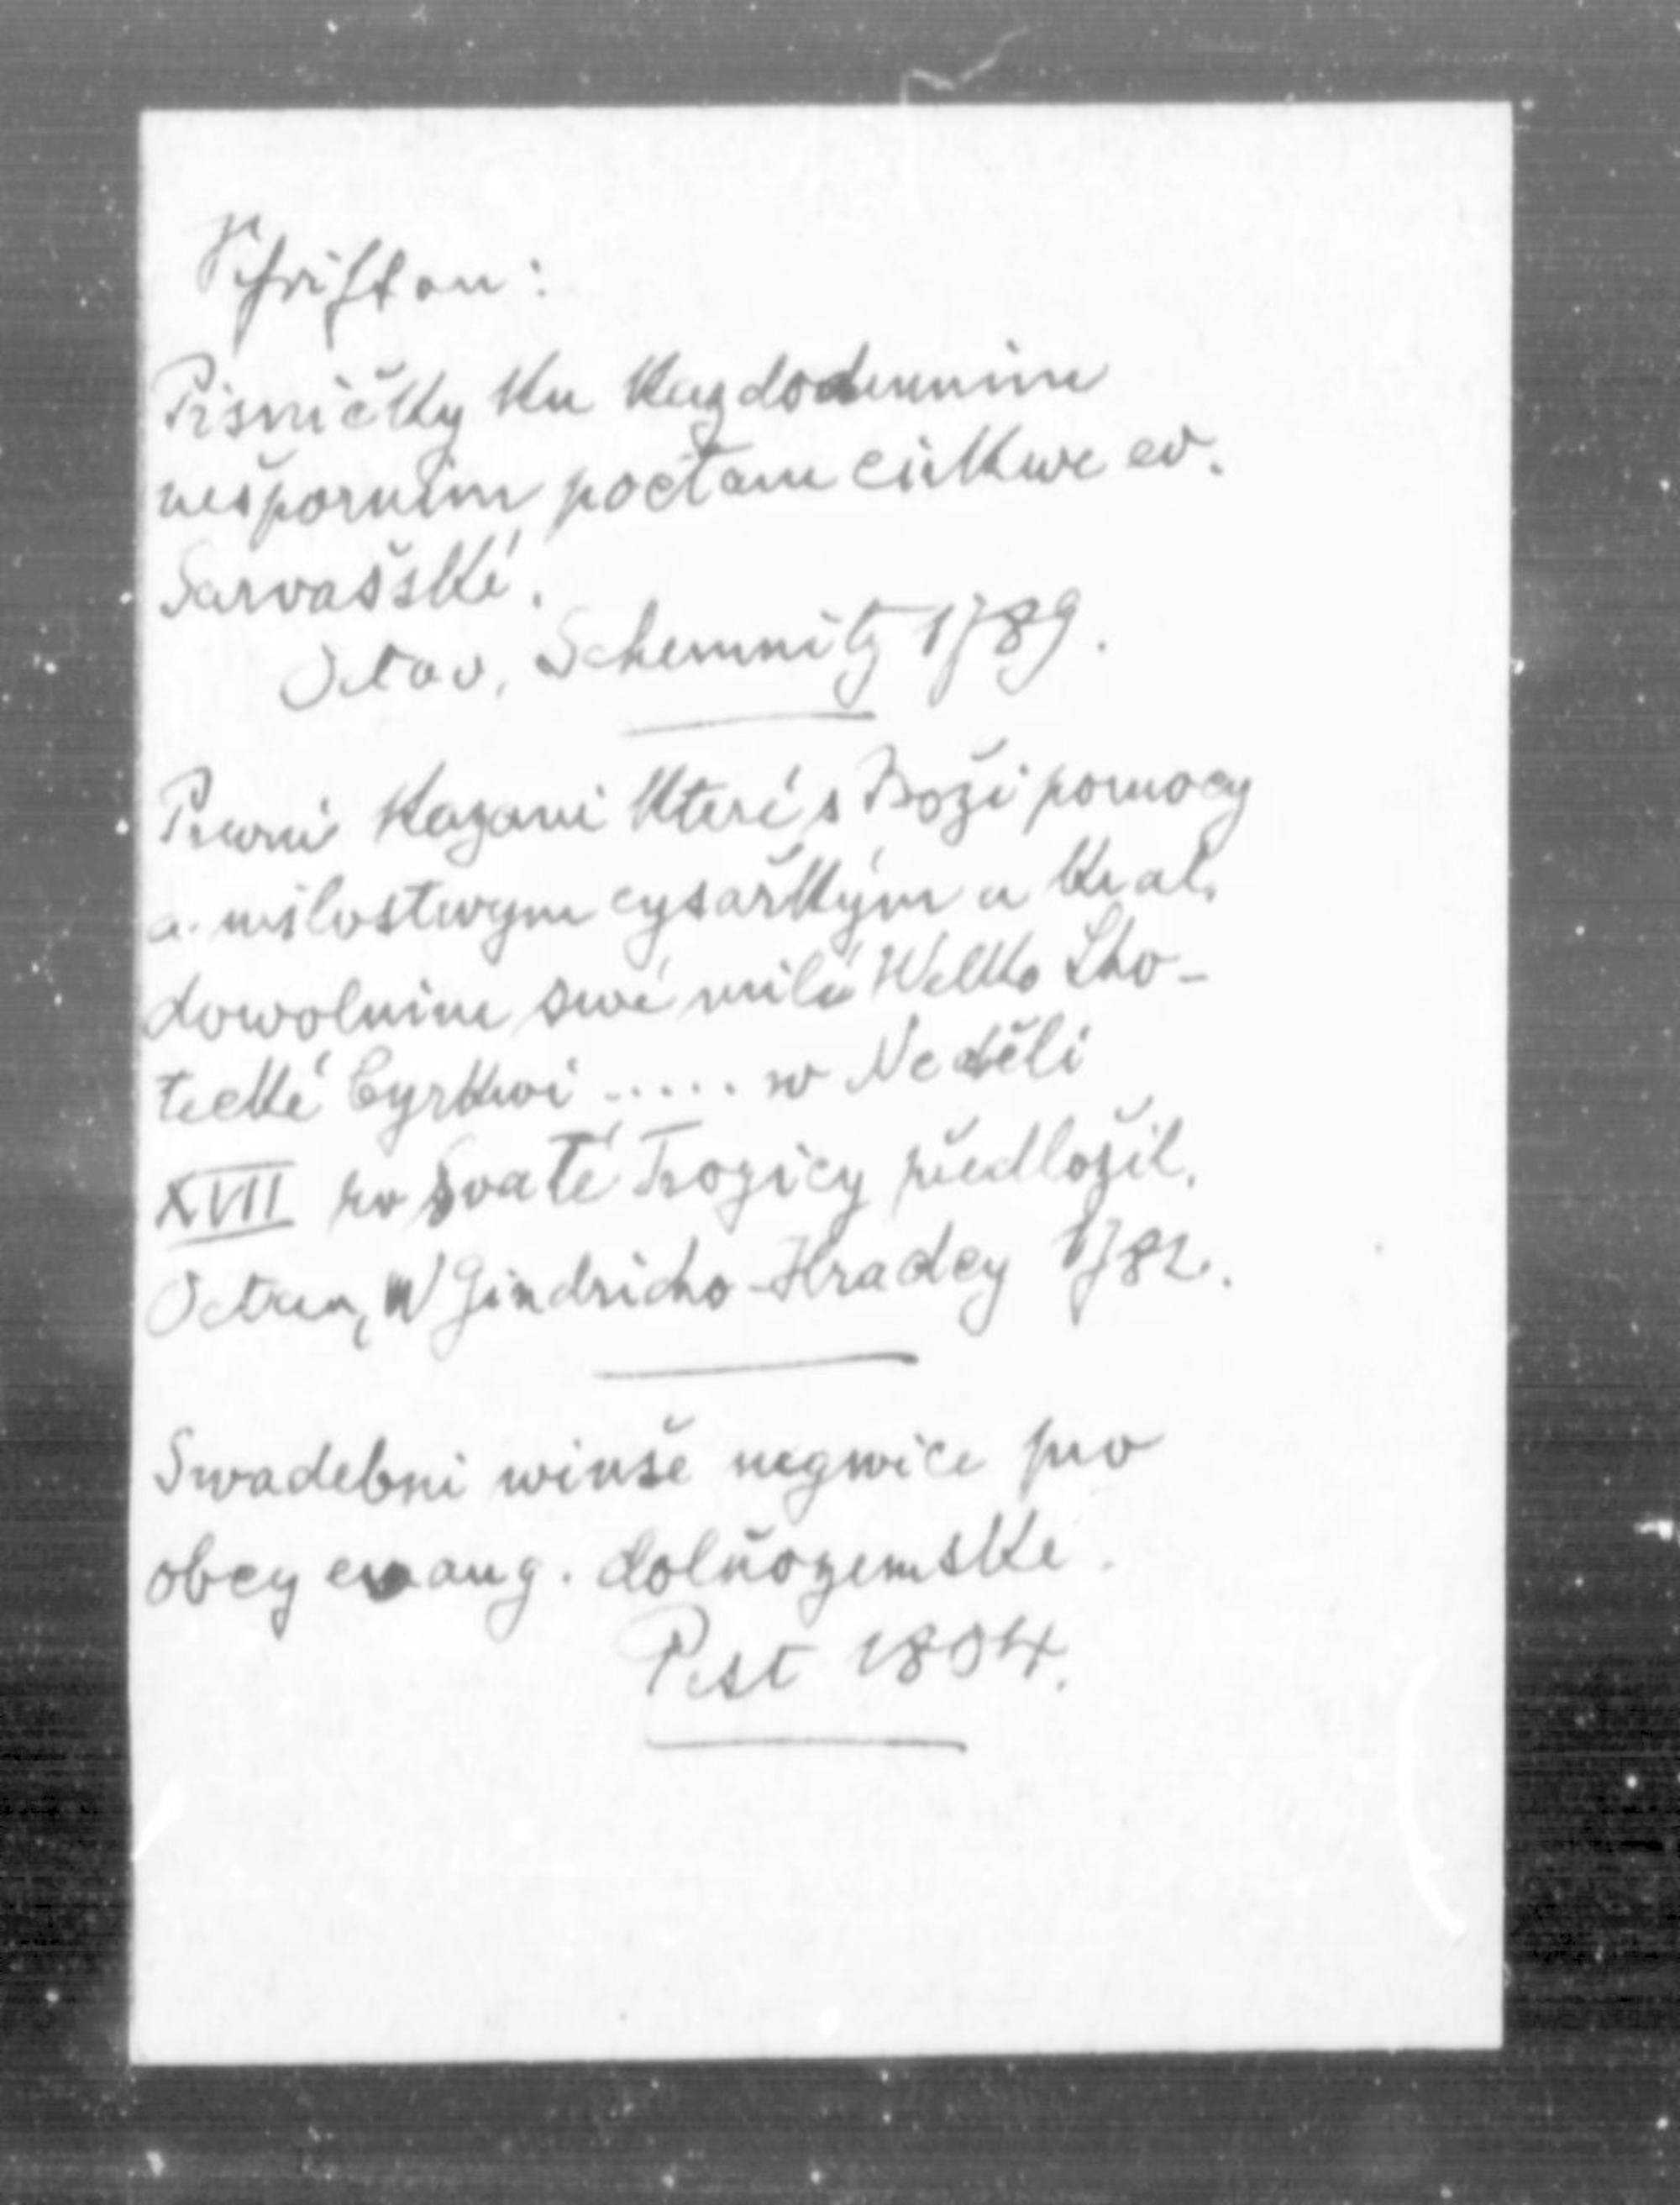 Schriften:
Pisničky ku kazdodennim
nešpornim poctam cirkwe ev.
Sarvašské.
Octav, Schemnitz 1789.
Prwni Kazani které s Boži pomocy
a milostwym cysařkým a kral.
dowolnim swé milé Welko Lho-
tecké Cyrkwi ..... w Neděli
XVII po Svaté Trogicy předložil.
Octav, W Gindricho-Hradcy 1782.
Swadebni winše negwice pro
obcy evang. dolňozemske.
Pest 1804.